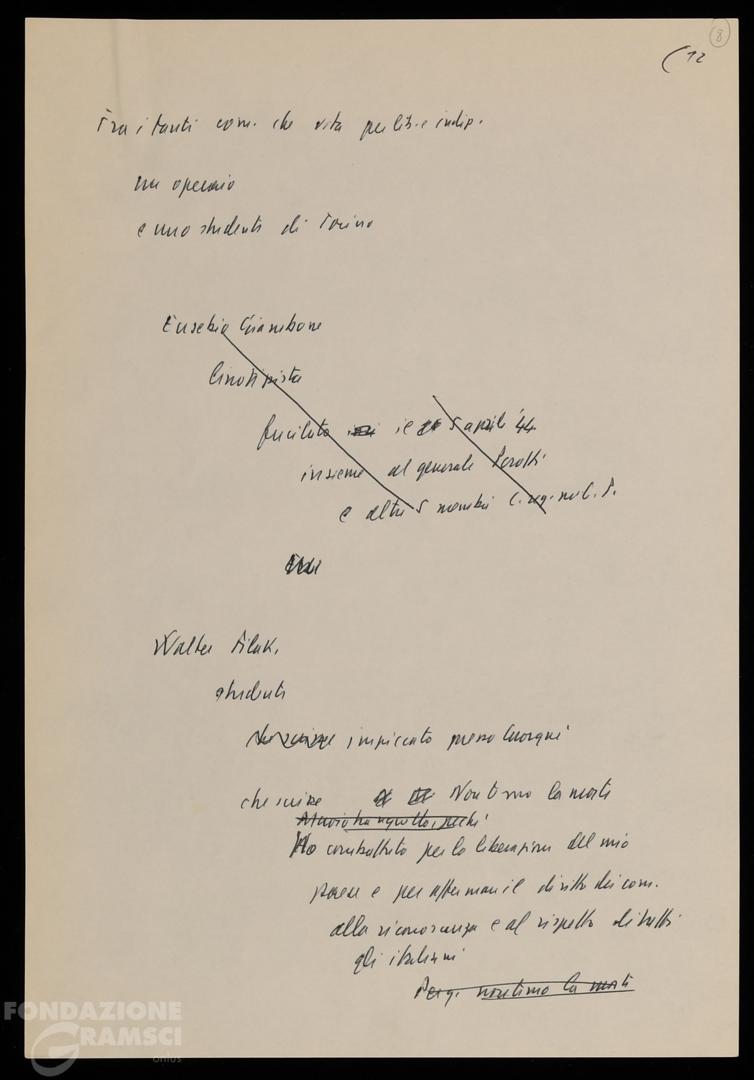 8
(12
Fra i tanti com. che vita per lib. e indip.
un operaio
e uno studente di Torino
Eusebio Giambone
linotipista
fucilato il 5 aprile '44
insieme al generale Perotti
e altri 5 membri C. reg. mil. P.
Walter Filak,
studente
impiccato presso Cuorgnè
che scisse Non temo la morte
Muoio senza
Ho combattuto per la liberazione del mio
paese e per affermare il diritto dei com.
alla riconoscenza e al rispetto di tutti
gli italiani
Perciò non temo la morte
FONDAZIONE
GRAMSCI
onlus